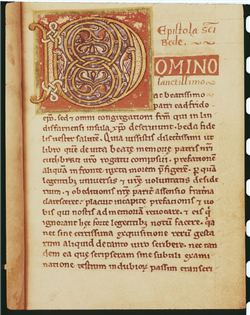 Epistola sci
Bede.
DOMINO
sanctissimo
ac beatissimo
patri eadfrido
epo, sed & omni congregationi frm̄ qui in lin
disfarnensi insula xp̄o deseruiunt. beda fide
lis uester salutē. Quia iussistis dilectissimi ut
libro quem de uita beate memorie patris nr̄i
cuthberti uestro rogatu composui. prefationem
aliquā in fronte iuxta morem p̄figerē. p quā
legentibus uniuersis & uṙe uoluntatis deside
rium. & obeditionis nr̄e pariter assensio frat̄na
claresceret. placuit in capite prefacionis & uo
bis qui nostis ad memoriā reuocare. & eis q̇
ignorant hec forte legentibus notū facere. qa
nec sine certissima exquisitione rerū gesta
rum aliquid de tanto uiro scribere. nec tan
dem ea que scripseram sine subtili exami
natione testium indubiorū passim transcri